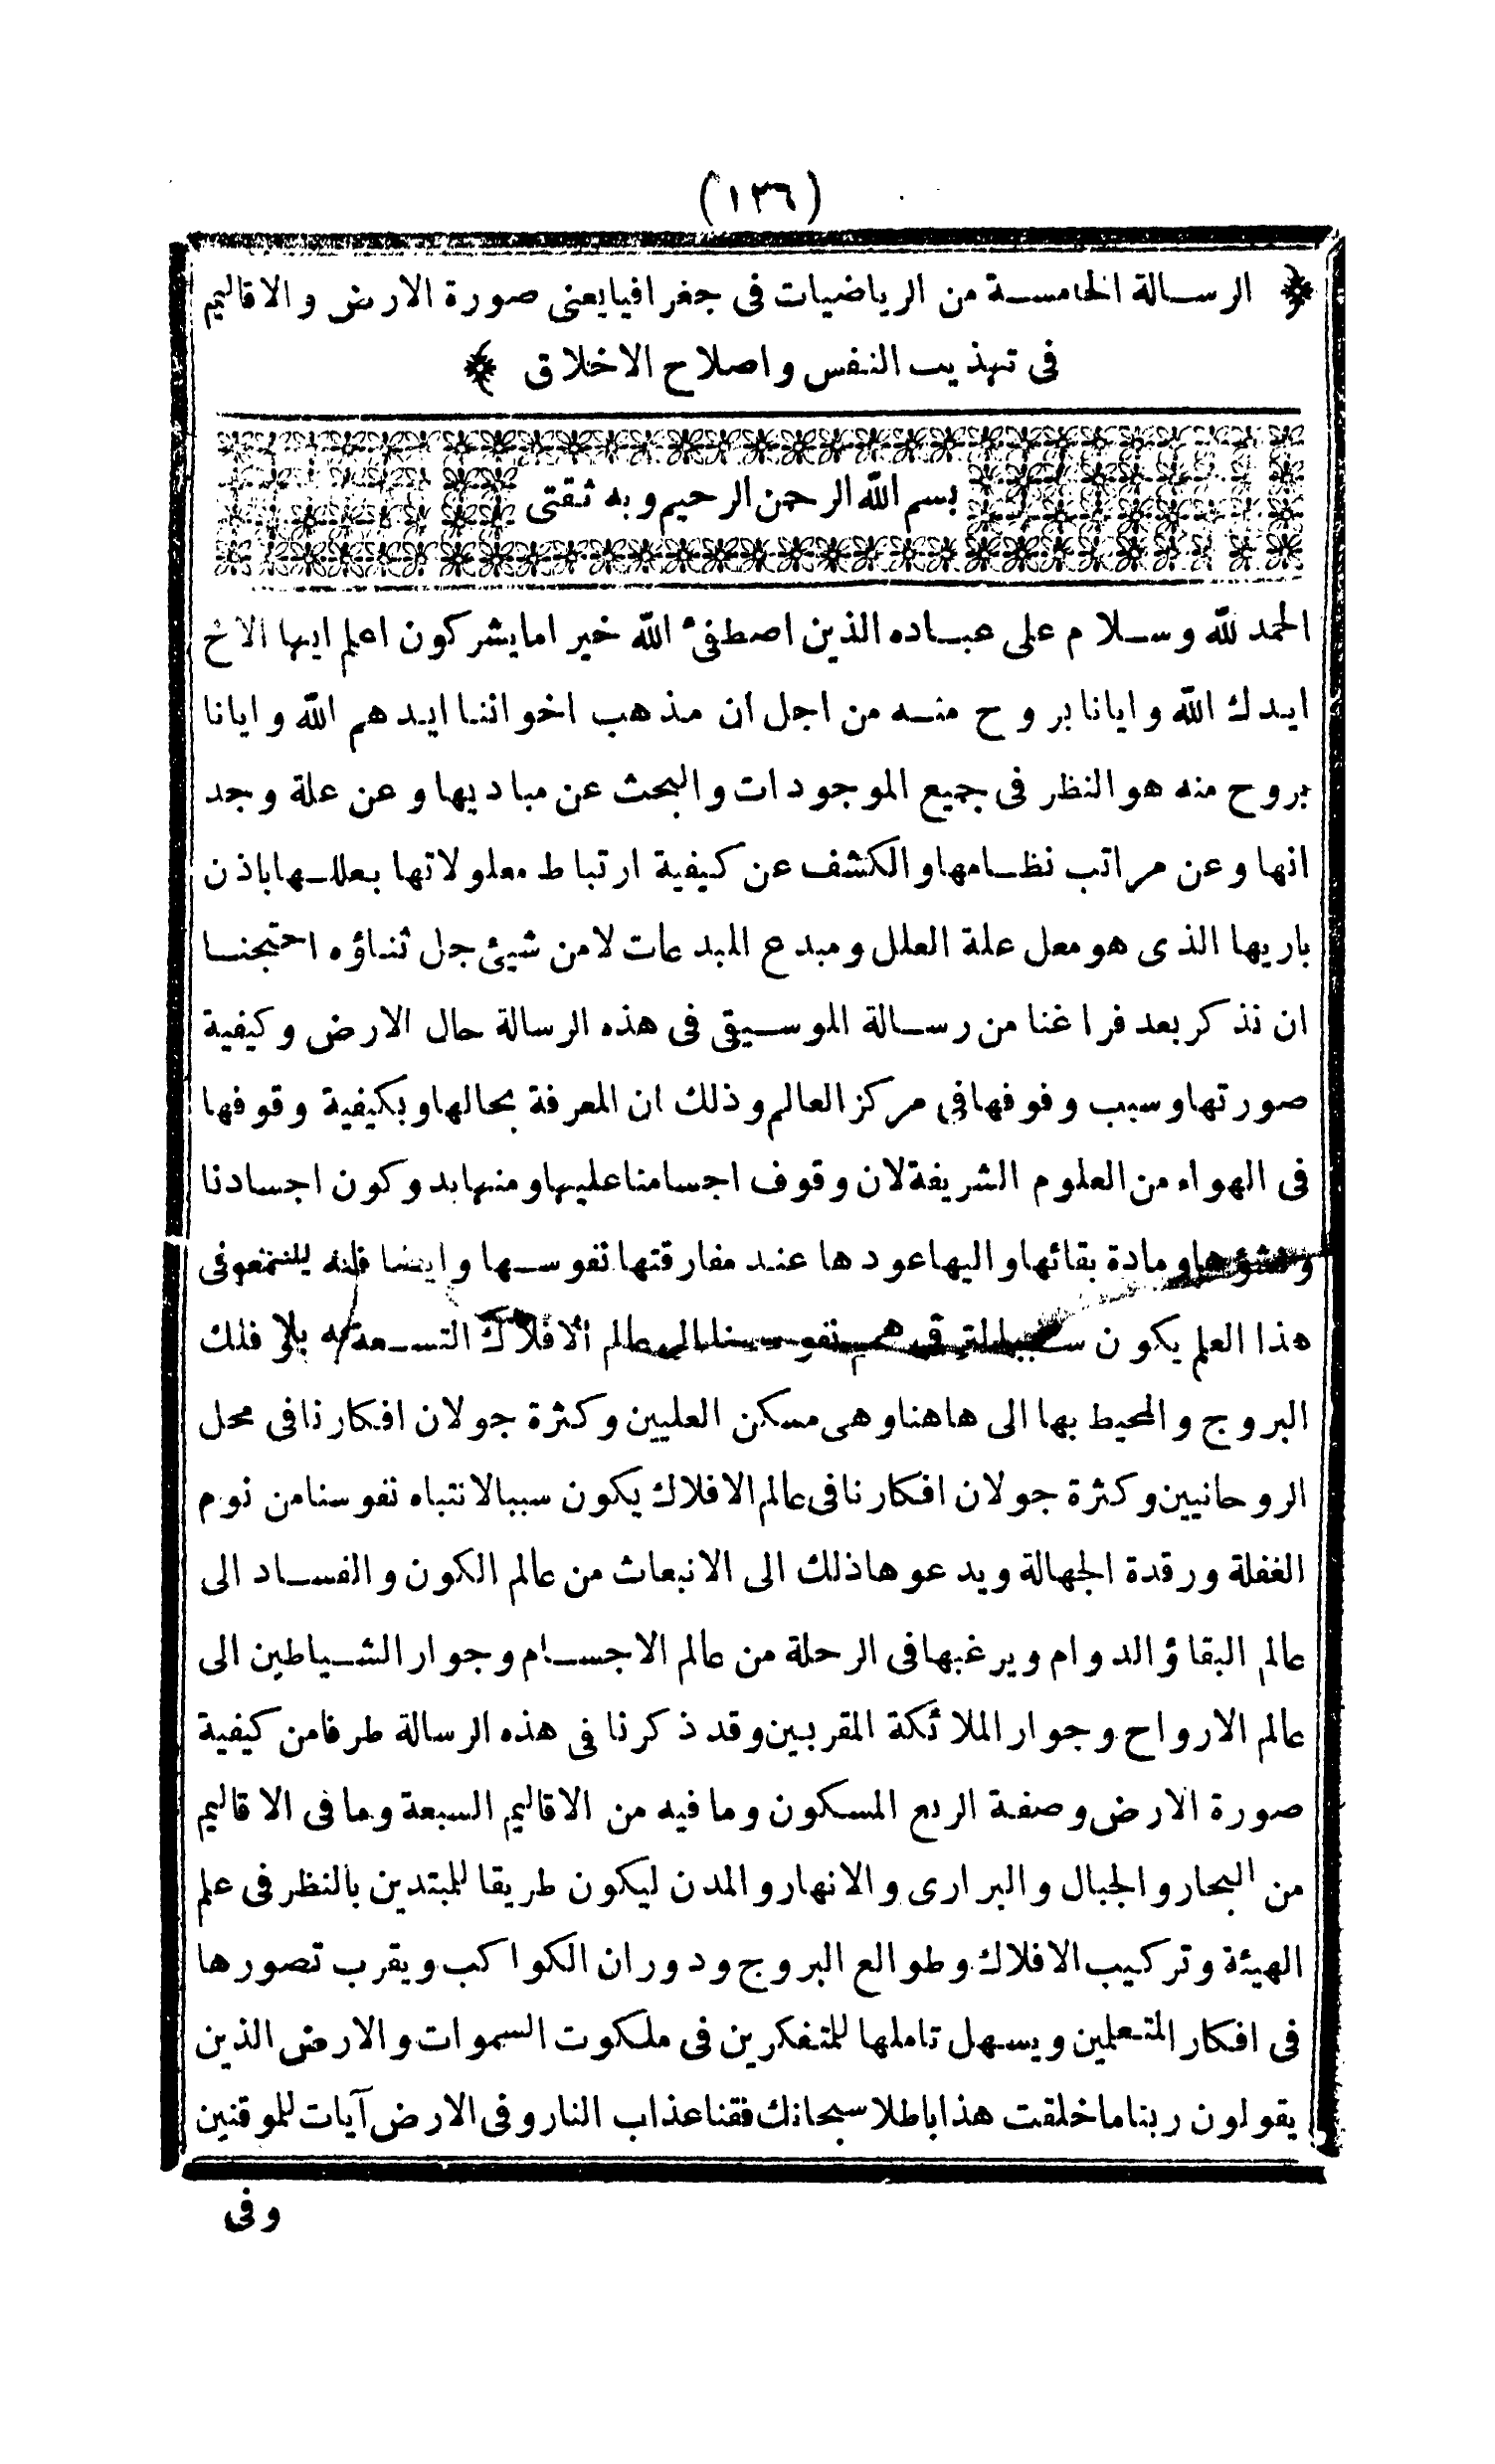 (١٣٦)
الرسالة الخامسة من الرياضيات فى جغرافيا يعنى صورة الارض والاقاليم
فى تهذيب النفس واصلاح الاخلاق
بسم الله الرحمن الرحيم وبه ثقتى
الحمد لله وسلام على عباده الذين اصطفى ء الله خير اما يشركون اعلم ايها الاخ
ايدك الله وايانا بروح منه من اجل ان مذهب اخواننا ايدهم الله وايانا
بروح منه هو النظر فى جميع الموجودات والبحث عن مباديها وعن علة وجد
انها وعن مراتب نظامها والكشف عن كيفية ارتباط معلولاتها بعللها باذن
باريها الذى هو معل علة العلل ومبدع المبدعات لا من شيئ جل ثناؤه احتجنا
ان نذكر بعد فراغنا من رسالة الموسيقى فى هذه الرسالة حال الارض وكيفية
صورتها وسبب وفوفها فى مركز العالم وذلك ان المعرفة بحالها وبكيفية وقوفها
فى الهواء من العلوم الشريفة لان وقوف اجسامنا عليها ومنها بد وكون اجسادنا
ونشؤها ومادة بقائها واليها عودها عند مفارقتها نفوسها وايضا فانه فى
هذا العلم يكون سببا للترقى همم نفوسنا الى عالم الافلاك التسعة فلك
البروج والمحيط بها الى هاهنا وهى مسكن العليين وكثرة جولان افكارنا فى محل
الروحانيين وكثرة جولان افكارنا فى عالم الافلاك يكون سببا لانتباه نفوسنا من نوم
الغفلة ورقدة الجهالة ويدعوها ذلك الى الانبعاث من عالم الكون والفساد الى
عالم البقاؤ الدوام ويرغبها فى الرحلة من عالم الاجسام وجوار الشياطين الى
عالم الارواح وجوار الملائكة المقربين وقد ذكرنا فى هذه الرسالة طرفا من كيفية
صورة الارض وصفة الربع المسكون وما فيه من الاقاليم السبعة وما فى الاقاليم
من البحار والجبال والبرارى والانهار والمدن ليكون طريقا للمبتدين بالنظر فى علم
الهيئة وتركيب الافلاك وطوالع البروج ودوران الكواكب ويقرب تصورها
فى افكار المتعلمين ويسهل تاملها للمتفكرين فى ملكوت السموات والارض الذين
يقولون ربنا ما خلقت هذا باطلا سبحانك فقنا عذاب النار وفى الارض آيات للموقنين
وفى